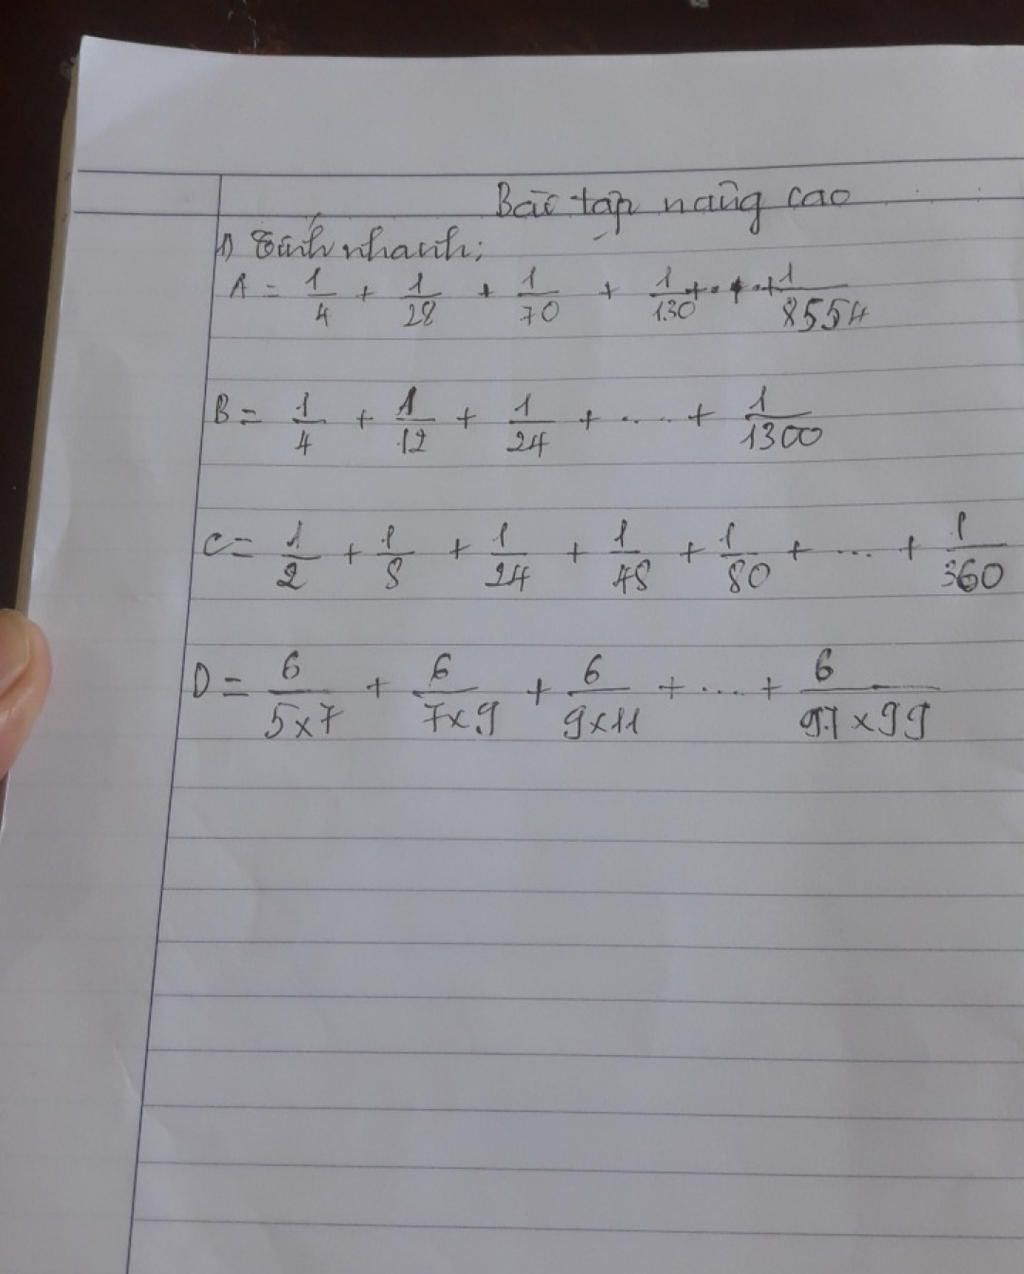 Bài tập nâng cao
1) Tính nhanh:
A = 1/4 + 1/28 + 1/70 + 1/130 + ... + 1/8554
B = 1/4 + 1/12 + 1/24 + .... + 1/1300
C = 1/2 + 1/8 + 1/24 + 1/48 + 1/80 + ... + 1/360
D = 6/5x7 + 6/7x9 + 6/9x11 + .... + 6/97x99